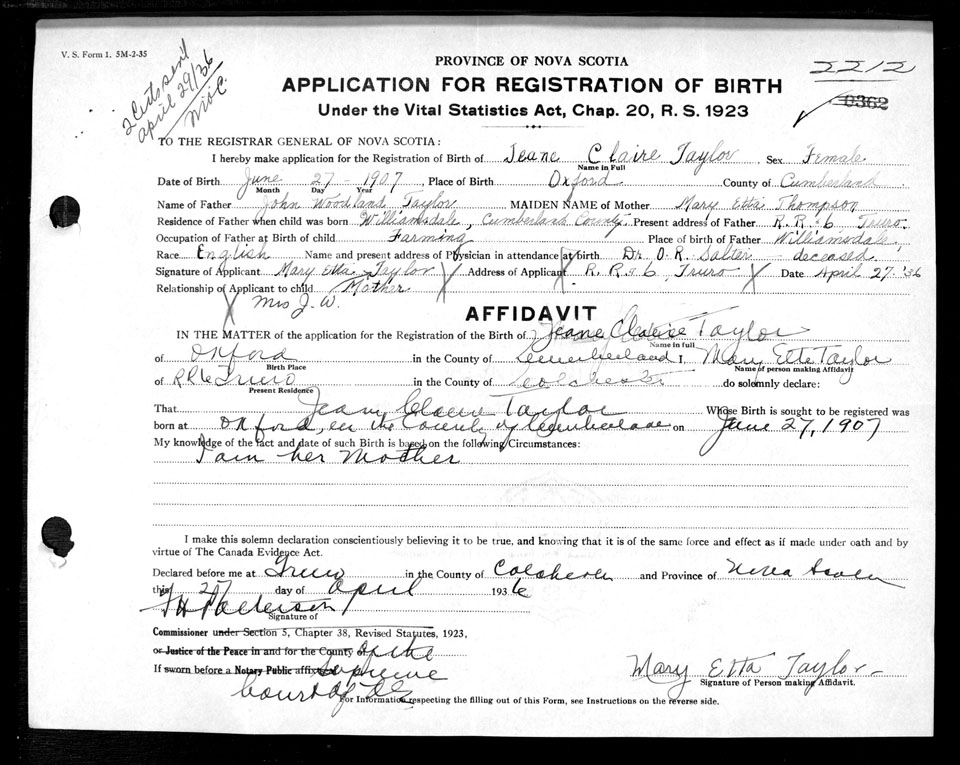 V. S. Form 1. 5M-2-35
2 Certs sent
april 29/36
PROVINCE OF NOVA SCOTIA
2212
APPLICATION FOR REGISTRATION OF BIRTH
0362
Under the Vital Statistics Act, Chap. 20, R. S. 1923
TO THE REGISTRAR GENERAL OF NOVA SCOTIA:
I hereby make application for the Registration of Birth of Jeane Claire Taylor Sex Female
Name in Full
Date of Birth June 27 1907 Place of Birth Oxford County of Cumberland
Month Day Year
Name of Father John Woodland Taylor MAIDEN NAME of Mother Mary Etta Thompson
Residence of Father when child was born Williamsdale, Cumberland County. Present address of Father R. R # 6, Truro.
Occupation of Father at Birth of child Farming Place of birth of Father Williamsdale,
Race English Name and present address of Physician in attendance at birth Dr. O. R. Salter - deceased
Signature of Applicant Mary Etta Taylor Address of Applicant R. R # 6, Truro Date April 27. '36
Relationship of Applicant to child Mother
Mrs J. W.
AFFIDAVIT
IN THE MATTER of the application for the Registration of the Birth of Jeane Claire Taylor
Name in full
of Oxford in the County of Cumberland I, Mary Etta Taylor
Birth Place Name of person making Affidavit
of R R 6 Truro in the County of Colchester do solemnly declare:
Present Residence
That Jean Claire Taylor Whose Birth is sought to be registered was
born at Oxford, in the County of Cumberland on June 27, 1907
My knowledge of the fact and date of such Birth is based on the following Circumstances:
I am her Mother
I make this solemn declaration conscientiously believing it to be true, and knowing that it is of the same force and effect as if made under oath and by
virtue of The Canada Evidence Act.
Declared before me at Truro in the County of Colchester and Province of Nova Scotia
this 27 day of April 1936
Patterson
Signature of
Commissioner under Section 5, Chapter 38, Revised Statutes, 1923,
or Justice of the Peace in and for the County of of the
If sworn before a Notary Public affix Supreme
Court of
Mary Etta Taylor
Signature of Person making Affidavit.
For Information respecting the filling out of this Form, see Instructions on the reverse side.